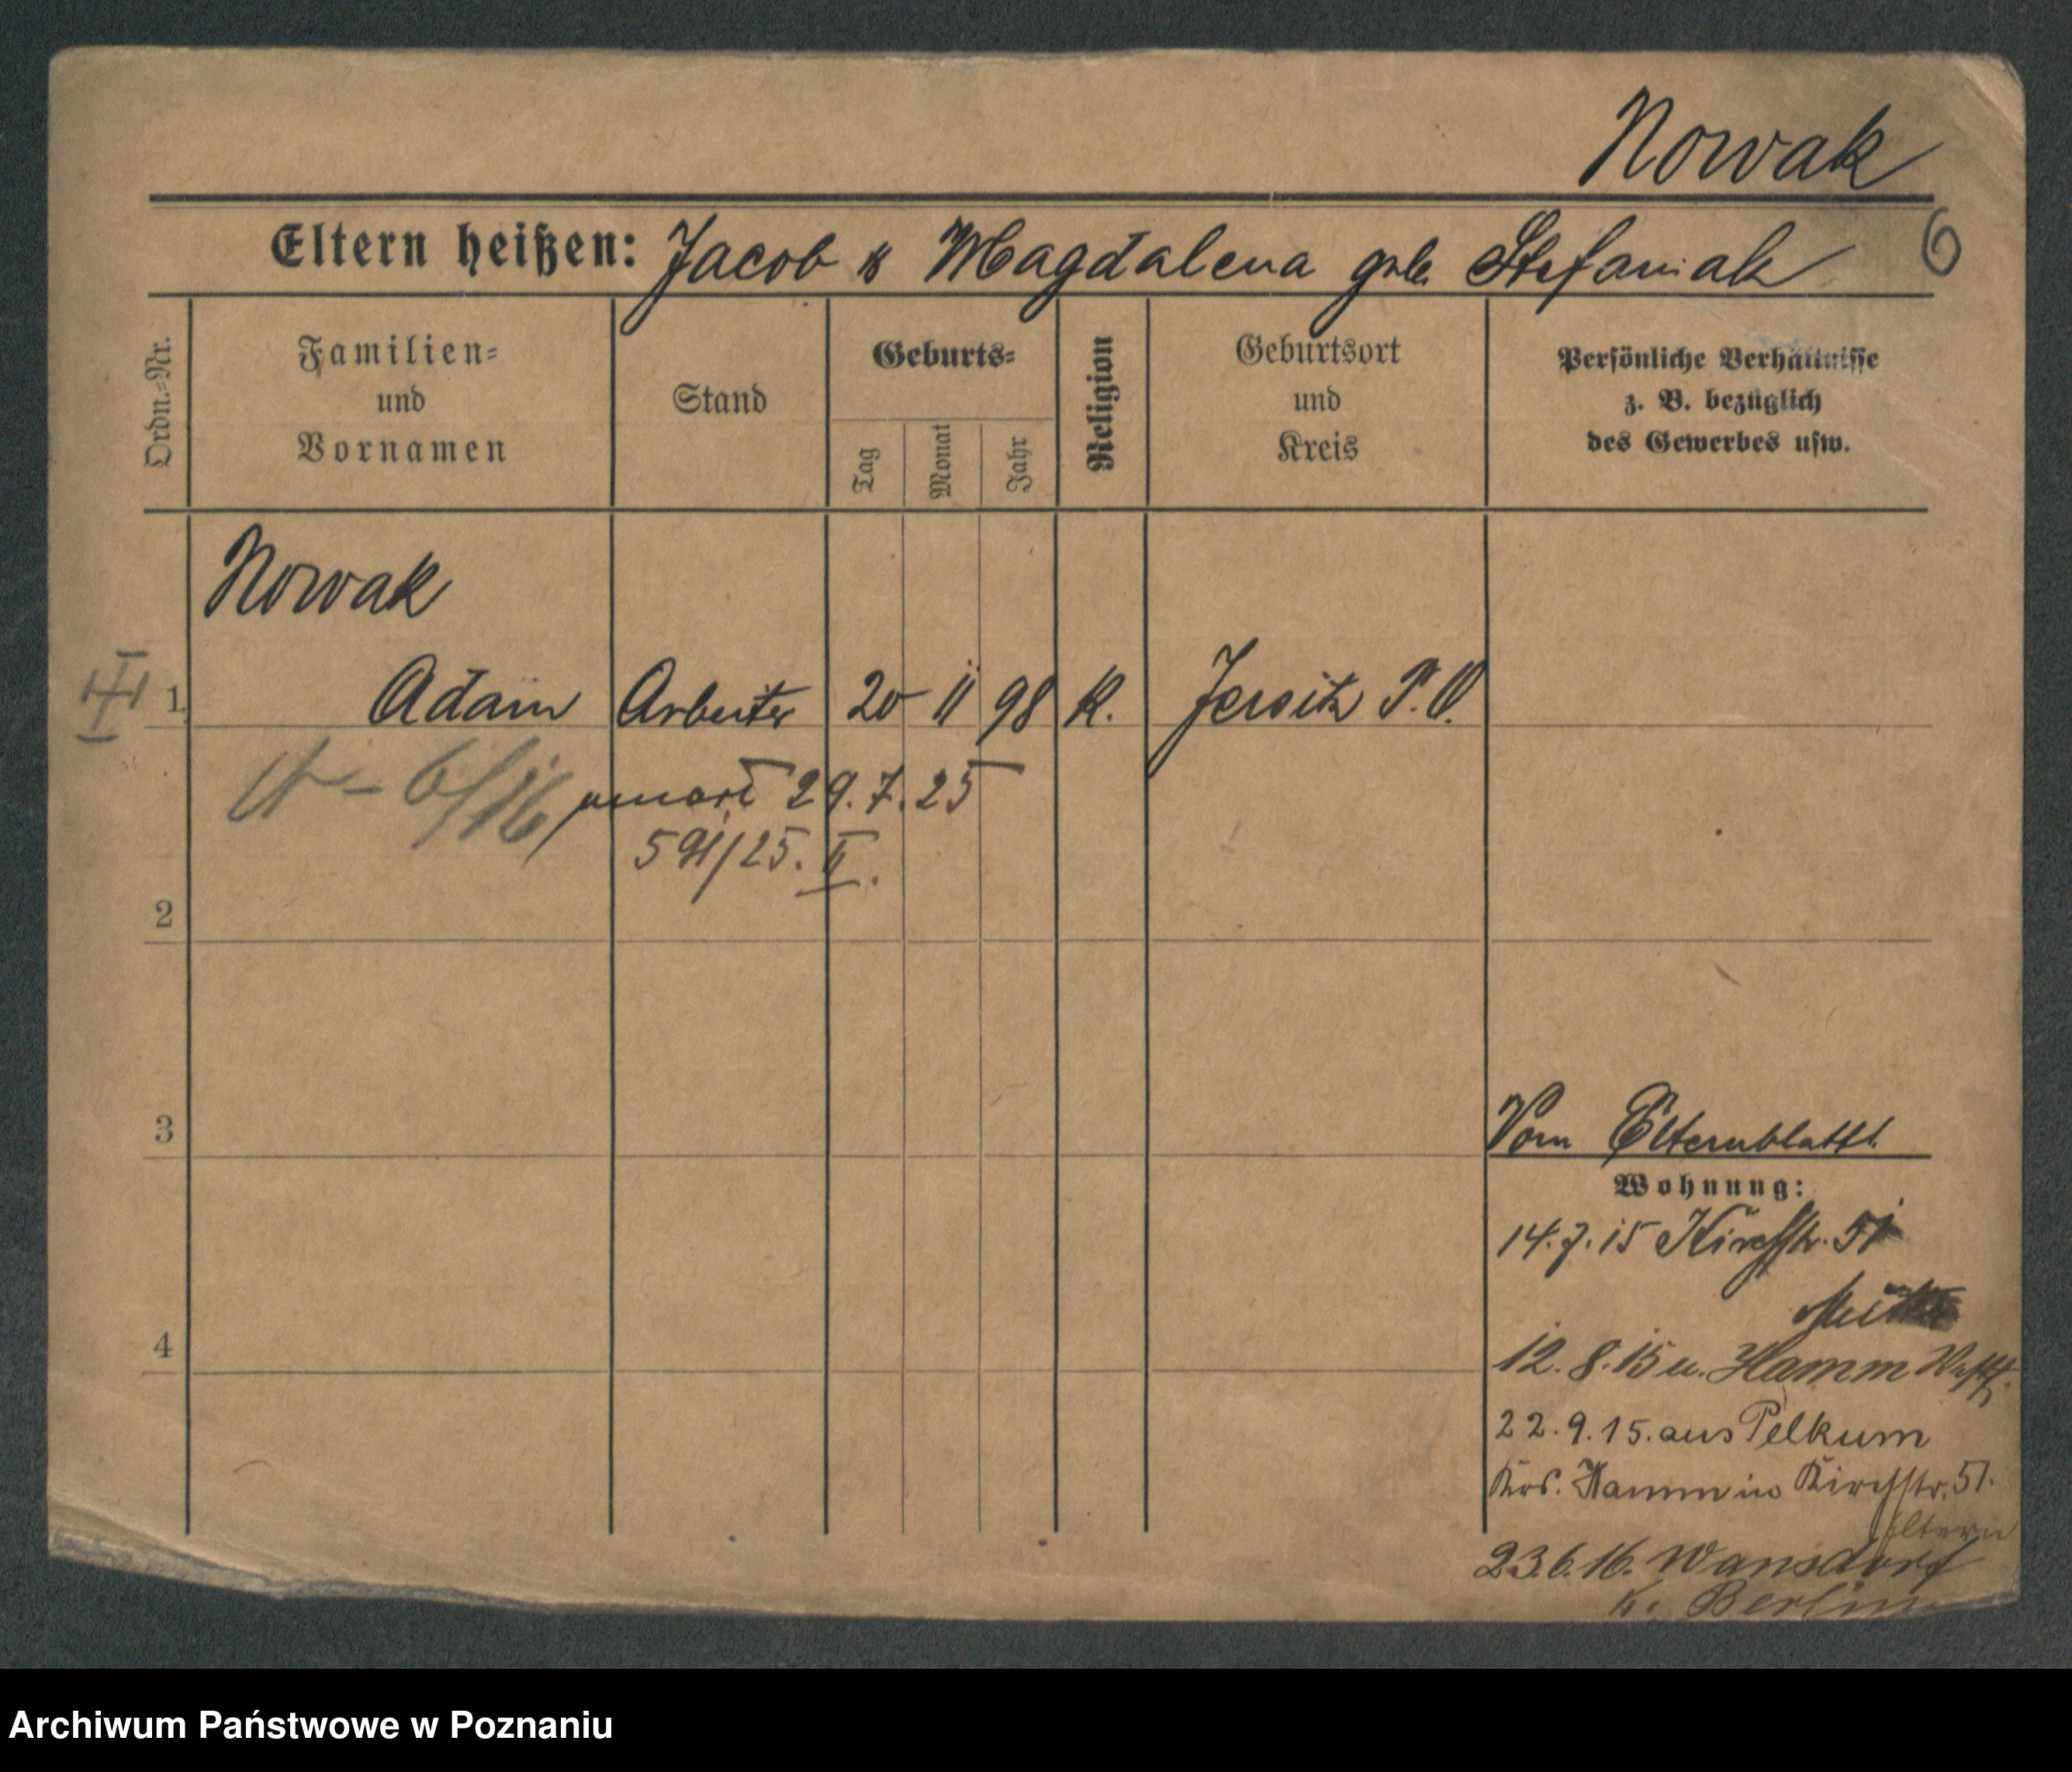 Nowak
Eltern heißen: Jacob & Magdalena geb. Stefaniak
6
Ordn.=Nr.
Familien=
und
Vornamen
Stand
Geburts=
Tag
Monat
Jahr
Religion
Geburtsort
und
Kreis
Persönliche Verhältnisse
z. B. bezüglich
des Gewerbes usw.
Nowak
1 Adam Arbeiter 20 11 98 K. Jersitz P. O.
6/16 29.7.25
591/25. II.
2
3
Vom Elternblatt.
Wohnung:
14.7.15 Kirchstr. 51
4
12.8.15 u. Hamm Westf.
22.9.15. aus Pelkum
Krs. Hamm in Kirchstr. 51.
Eltern
23.6.16. Wansdorf
K. Berlin
Archiwum Państwowe w Poznaniu